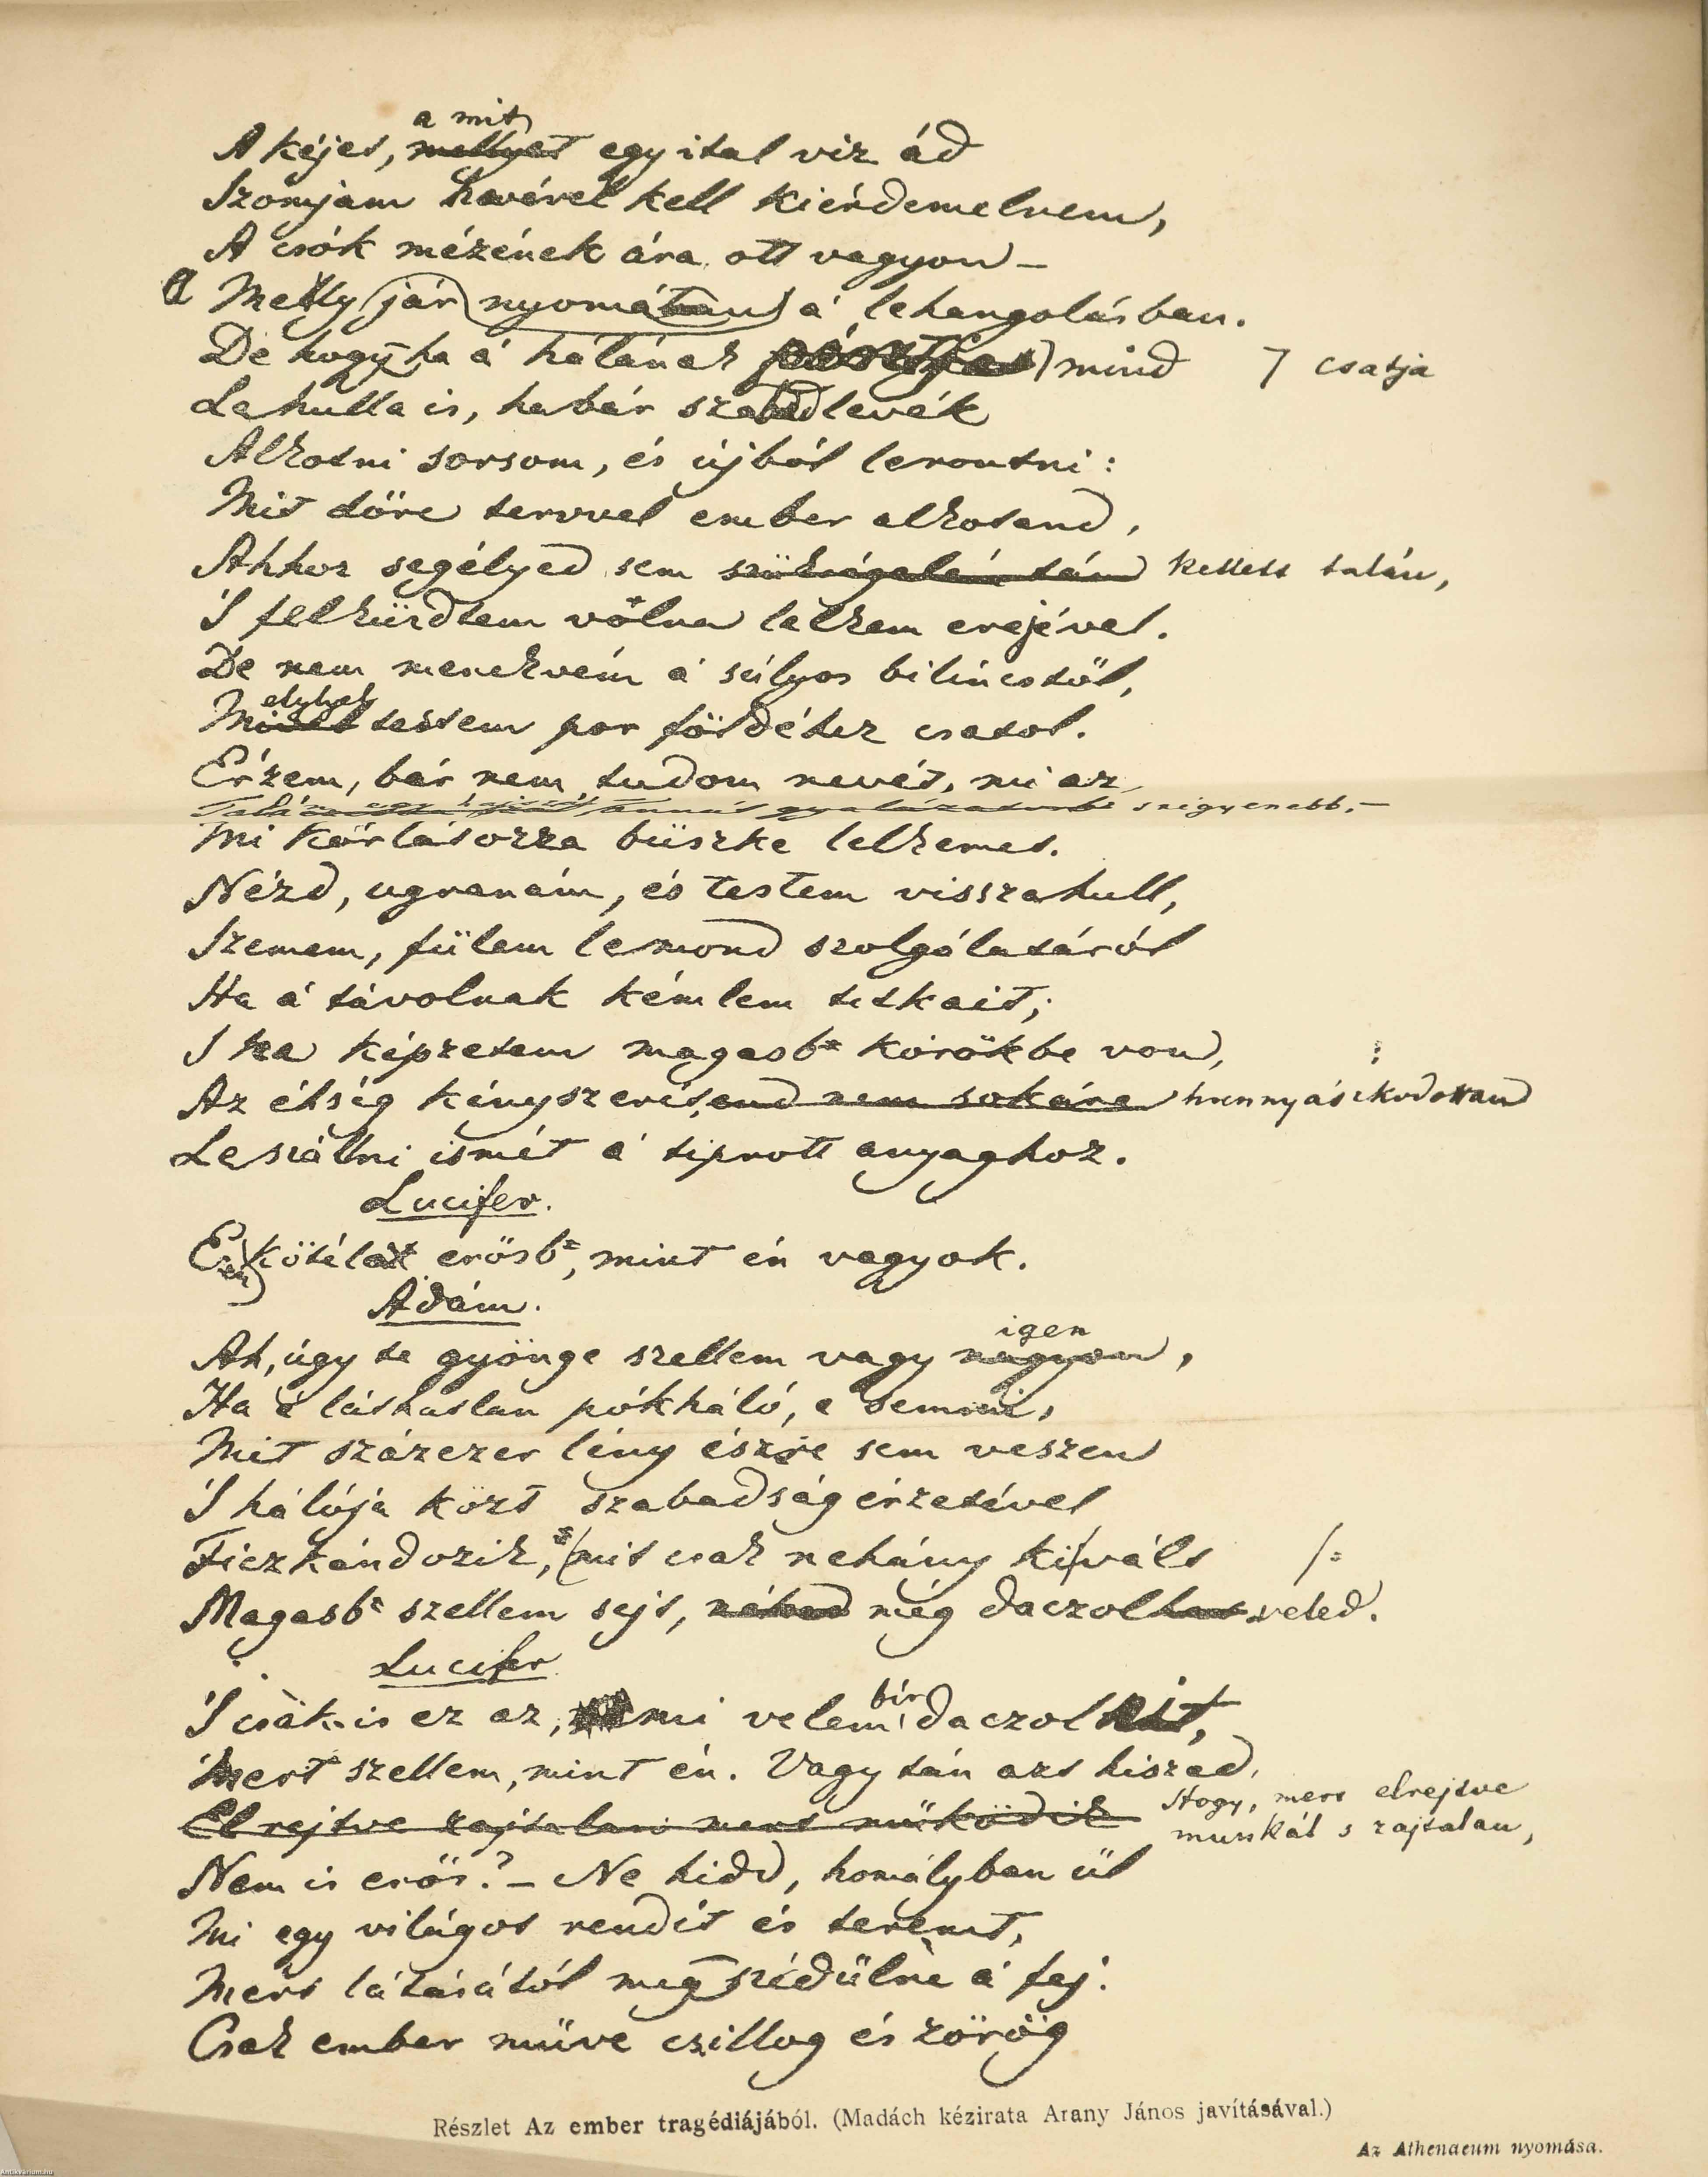 a mit
A kéjet, mellyet egy ital viz ád
Szomjam hevével kell kiérdemelnem,
A csók mézének ára ott vagyon —
a Melly jár nyomában á lehangolásban.
De hogy ha á hálának mind csatja
Lehulla is, habár szabad levék
Alkotni sorsom, és újból lerontni:
Mit dőre tervvel ember alkotand,
Ahhoz segélyed sem kellett talán,
S felküzdtem volna lelkem erejével.
De nem menekvém á súlyos bilincstől,
elyhek
testem por földéhez csatol.
Érzem, bár nem tudom nevét, mi az
s szégyenebb, —
Mi korlátozza büszke lelkemet.
Nézd, ugranám, és testem visszahull,
Szemem, fülem lemond szolgálatáról
Ha á távolnak kémlem titkait;
S ha képzetem magasb körökbe von,
Az éhség kényszerít,end nem sokára hunnyászkodottand
Leszállni ismét á tiprott anyaghoz.
Lucifer.
E kötélen erősb, mint én vagyok.
Ádám.
igen
Ah, úgy te gyönge szellem vagy nagyon,
Ha e láthatlan pókháló, e semmi,
Mit százezer lény észre sem veszen
S hálója közt szabadság érzetével
Ficzkándozik, s mit csak nehány kivált
Magasb szellem sejt, még daczol veled.
Lucifer
bír
S csak is ez az, mi velem daczolni,
Mert szellem, mint én. Vagy tán azt hiszed,
Elrejtve zajtalan mert működik Hogy, mert elrejtve
munkál s zajtalan,
Nem is erős? — Ne hidd, homályban űl
Mi egy világot rendít és teremt,
Mert látásától megszédűlne á fej.
Csak ember műve csillog és zörög
Részlet Az ember tragédiájából. (Madách kézirata Arany János javításával.)
Az Athenaeum nyomása.
Antikvarium.hu